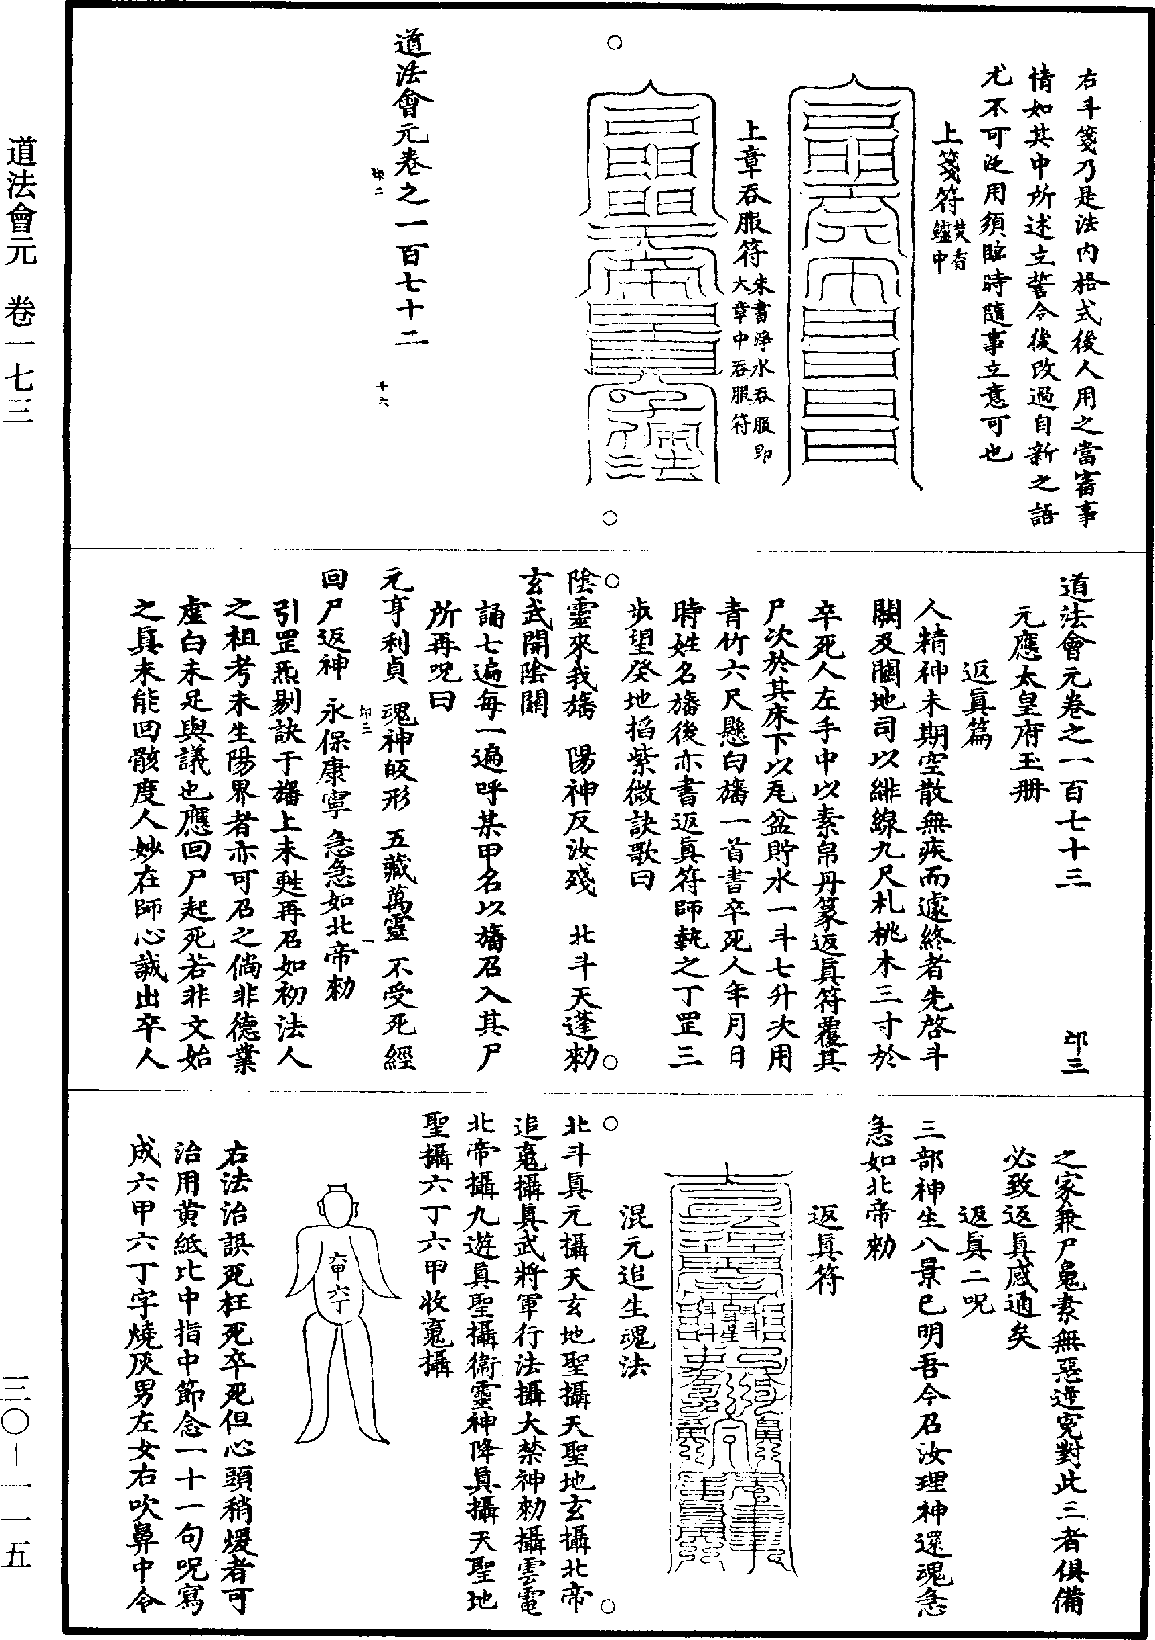 道法會元 卷一七三
三〇—一一五
右斗箋乃是法内格式後人用之當審事
情如其中所述立誓令後改過自新之語
尤不可泛用須臨時隨事立意可也
上箋符
焚香
鑪中
上章吞服符
朱書淨水吞服即
大章中吞服符
道法會元卷之一百七十二
卬二
十六
道法會元卷之一百七十三
卬三
元應太皇府玉册
返眞篇
人精神未期空散無疾而遽終者先啓斗
關及閫地司以緋線九尺札桃木三寸於
卒死人左手中以素帛丹篆返眞符覆其
尸次於其床下以瓦盆貯水一斗七升次用
青竹六尺懸白旛一首書卒死人年月日
時姓名旛後亦書返眞符師執之丁罡三
步望癸地掐紫微訣歌曰
陰靈來我旛 陽神反汝殘 北斗天蓬勑
玄武開陰關
誦七遍每一遍呼某甲名以旛召入其尸
所再呪曰
元亨利貞 魂神皈形 五藏萬靈 不受死經
回尸返神 永保康寧 急急如北帝勑
卬三
一
引罡炁剔訣于旛上未甦再召如初法人
之祖考未生陽界者亦可召之倘非德業
虛白未足與議也應回尸起死若非文始
之眞未能回骸度人妙在師心誠出卒人
之家兼尸鬼素無惡逆寃對此三者俱備
必致返眞感通矣
返眞二呪
三部神生八景已明吾今召汝理神還魂急
急如北帝勑
返眞符
混元追生魂法
北斗眞元攝天玄地聖攝天聖地玄攝北帝
追䰟攝眞武將軍行法攝大禁神勑攝雲電
北帝攝九遊眞聖攝衞靈神降眞攝天聖地
聖攝六丁六甲收䰟攝
六甲
六丁
右法治誤死枉死卒死但心頭稍煖者可
治用黄紙比中指中節念一十一句呪寫
成六甲六丁字燒灰男左女右吹鼻中令